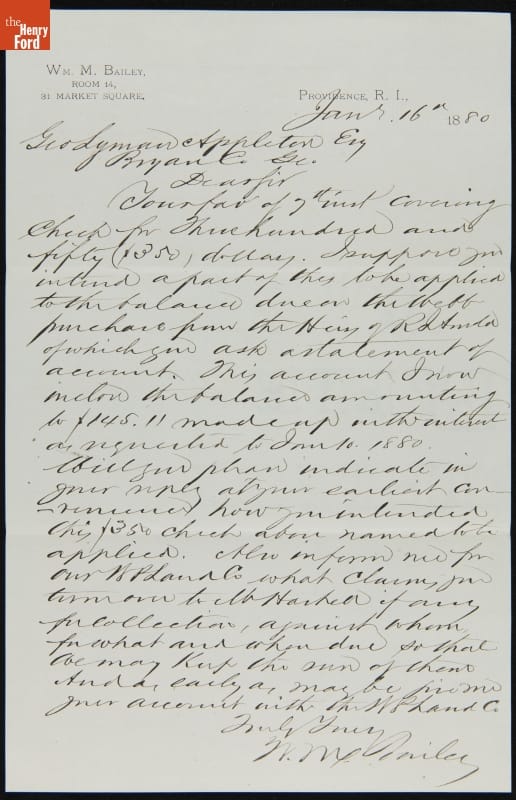 the
Henry
Ford
WM. M. BAILEY,
ROOM 14,
31 MARKET SQUARE.
PROVIDENCE, R. I.,
Jany. 16th 1880
Geo Lyman Appleton Esq
Bryan Co Ge.
Dear Sir
Your fav of 7th inst covering
check for Three hundred and
fifty ($350) dollars. I suppose you
intend a part of this to be applied
to the balance due on the Webb
purchase from the Heirs of R
of which you ask a statement of
account. This account I now
inclose the balance amounting
to $145.11 made up with interest
as requested to Jan 10. 1880.
Will you please indicate in
your reply at your earliest con-
-venience how you intended
this $350 check above named to be
applied. Also inform me for
our Land Co what claims you
turn over to Mr Haskell if any
for collection, against whom,
for what and when due so that
we may keep the run of them
And as early as may be give me
your account with the Land Co
Truly Yours
Wm M Bailey